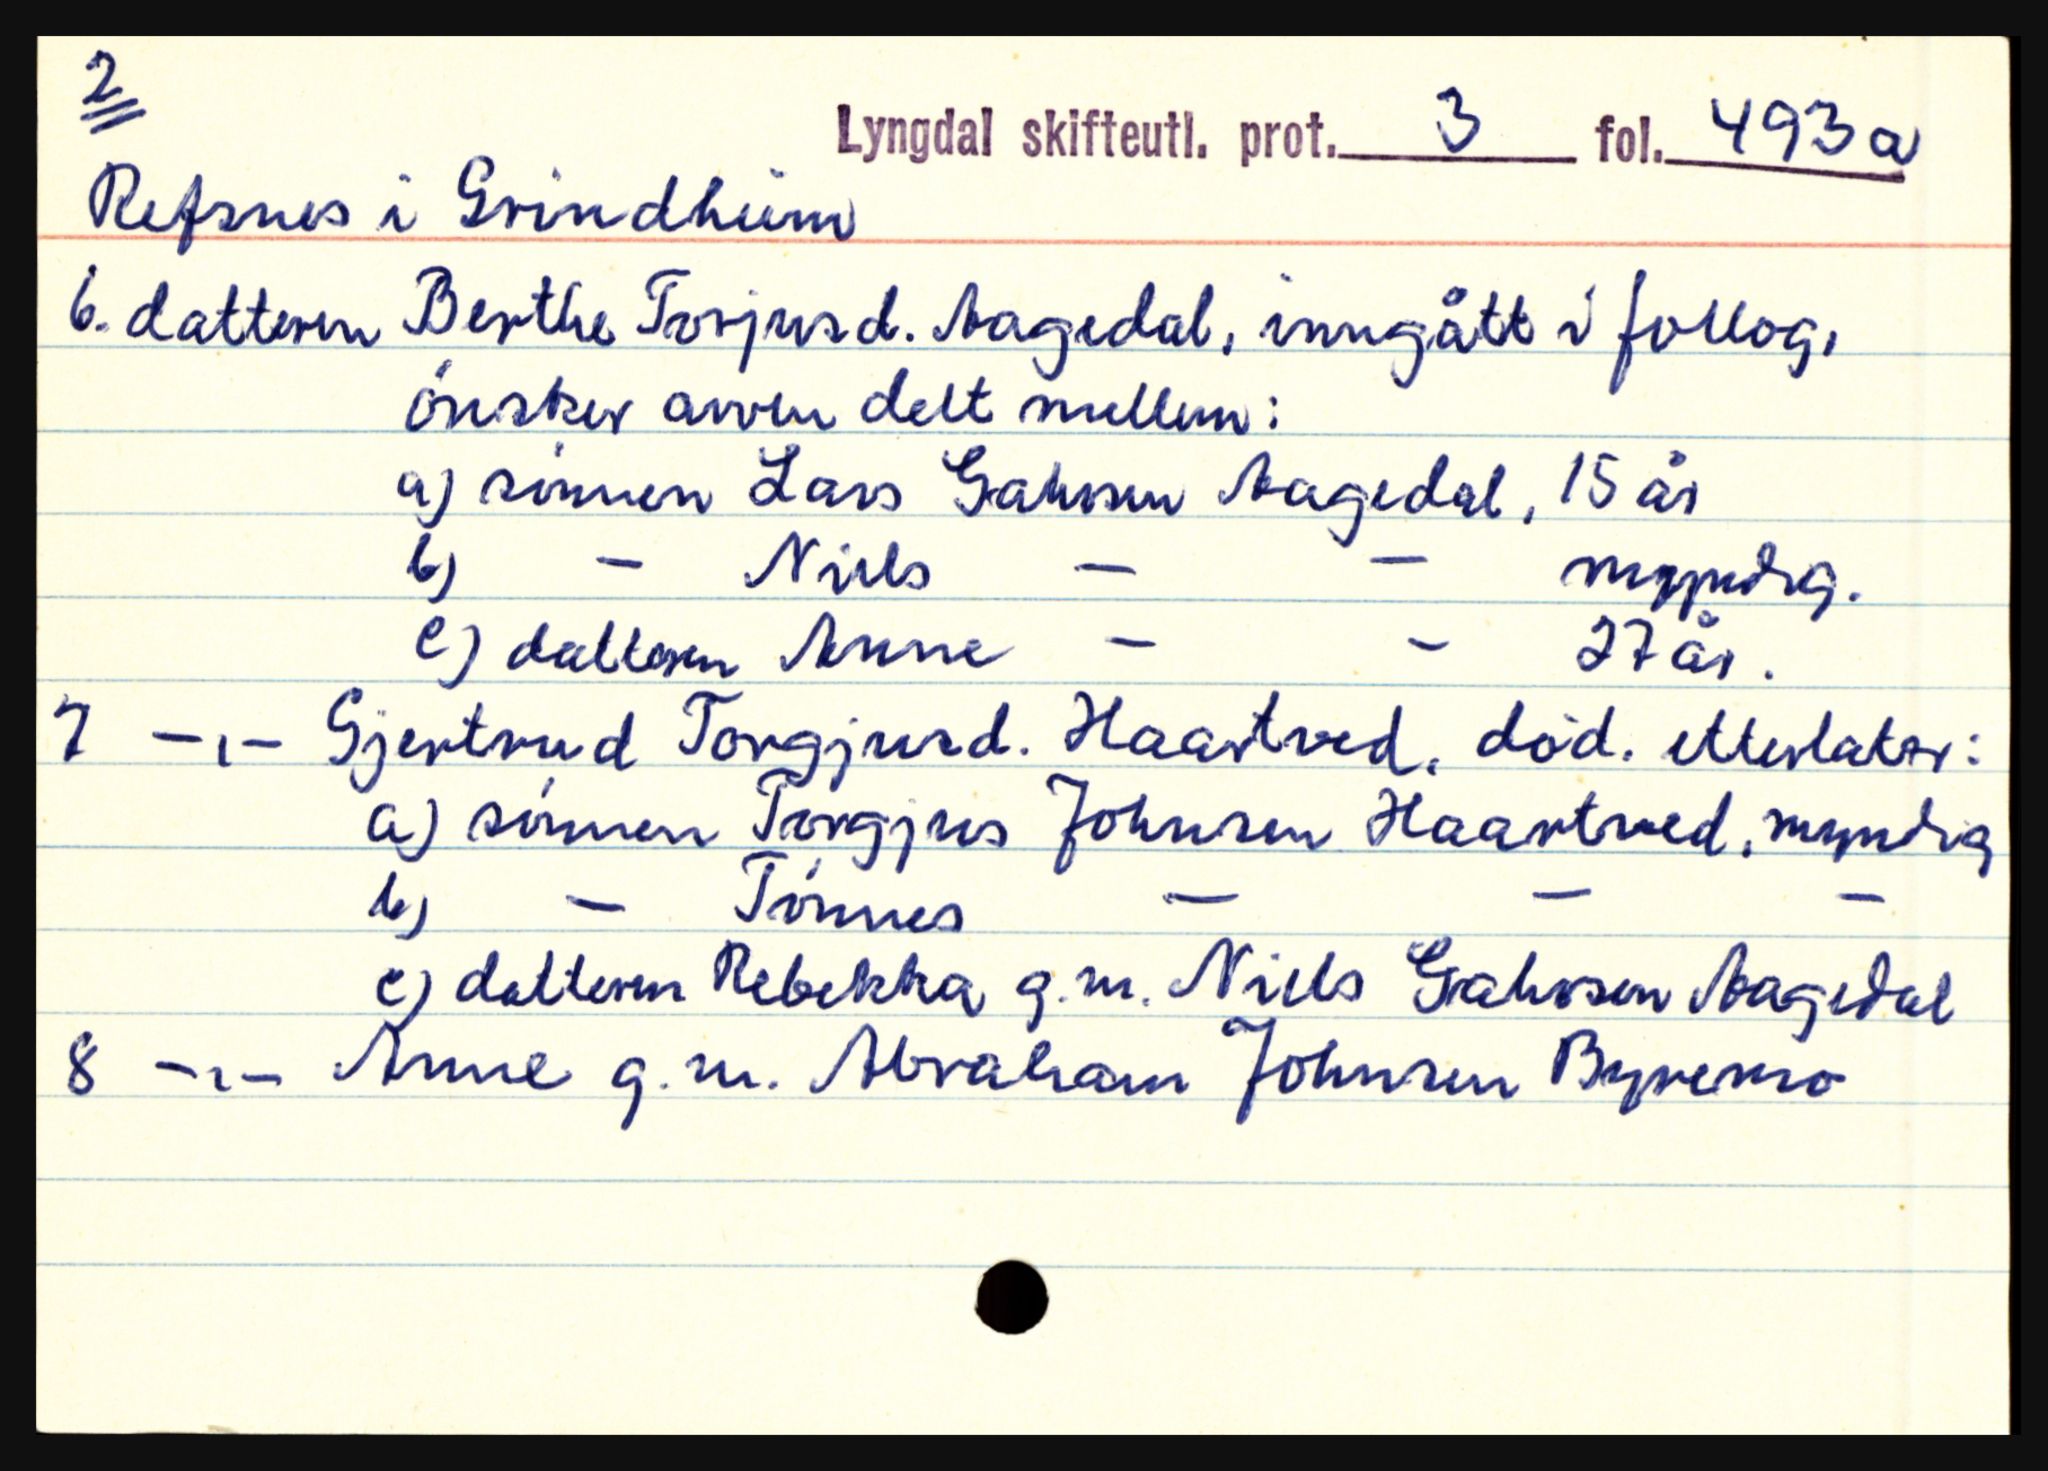 2
Lyngdal skifteutl. prot. 3 fol. 493a
Refsnes i Grindheim
6. datteren Berthe Torjusd. Aagedal, inngått i follog,
ønsker arven delt mellem:
a) sønnen Lars Gahrsen Aagedal, 15 år
b) - Niels - - myndig.
c) datteren Anne - - 27 år.
7 -,- Gjertrud Torgjusd. Haartved, død. etterlater:
a) sønnen Torgjus Johnsen Haartved, myndig
b) - Tønnes - - -
c) datteren Rebekka g.m. Niels Gahrsen Aagedal
8 -,- Anne g.m. Abraham Johnsen Byremo